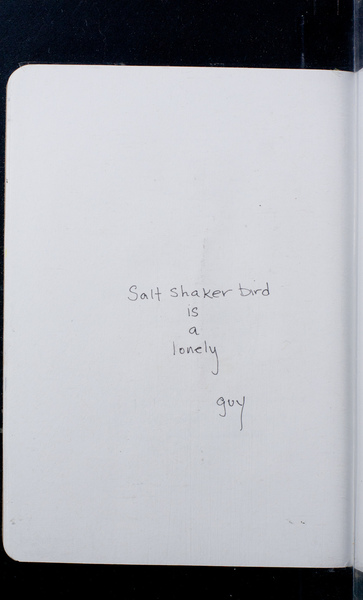 Salt shaker bird
is
a
lonely
guy